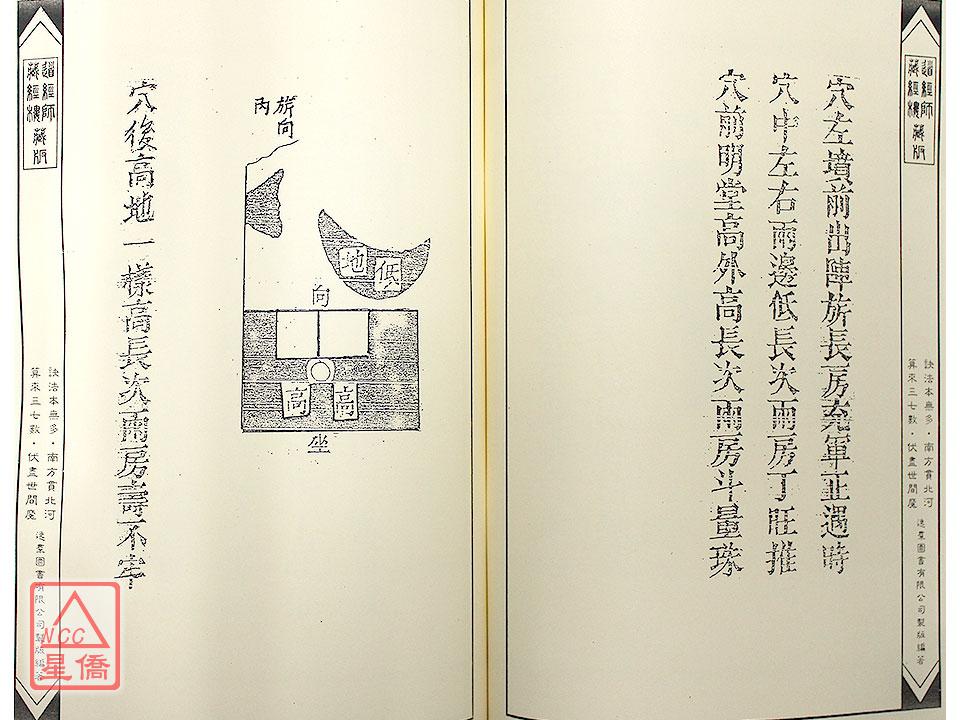 道經師
藏經樓藏版
訣法本無多．南方貫北河
算來三七數．伏盡世間魔
逸羣圖書有限公司製版編著
穴左墳前出陣旂長房充軍正遇時
穴中左右兩邊低長次兩房丁旺推
穴前明堂高外高長次兩房斗量珠
旂向
丙
低地
向
高高
坐
穴後高地一樣高長次兩房壽不牢
道經師
藏經樓藏版
訣法本無多．南方貫北河
算來三七數．伏盡世間魔
逸羣圖書有限公司製版編著
NCC
星僑